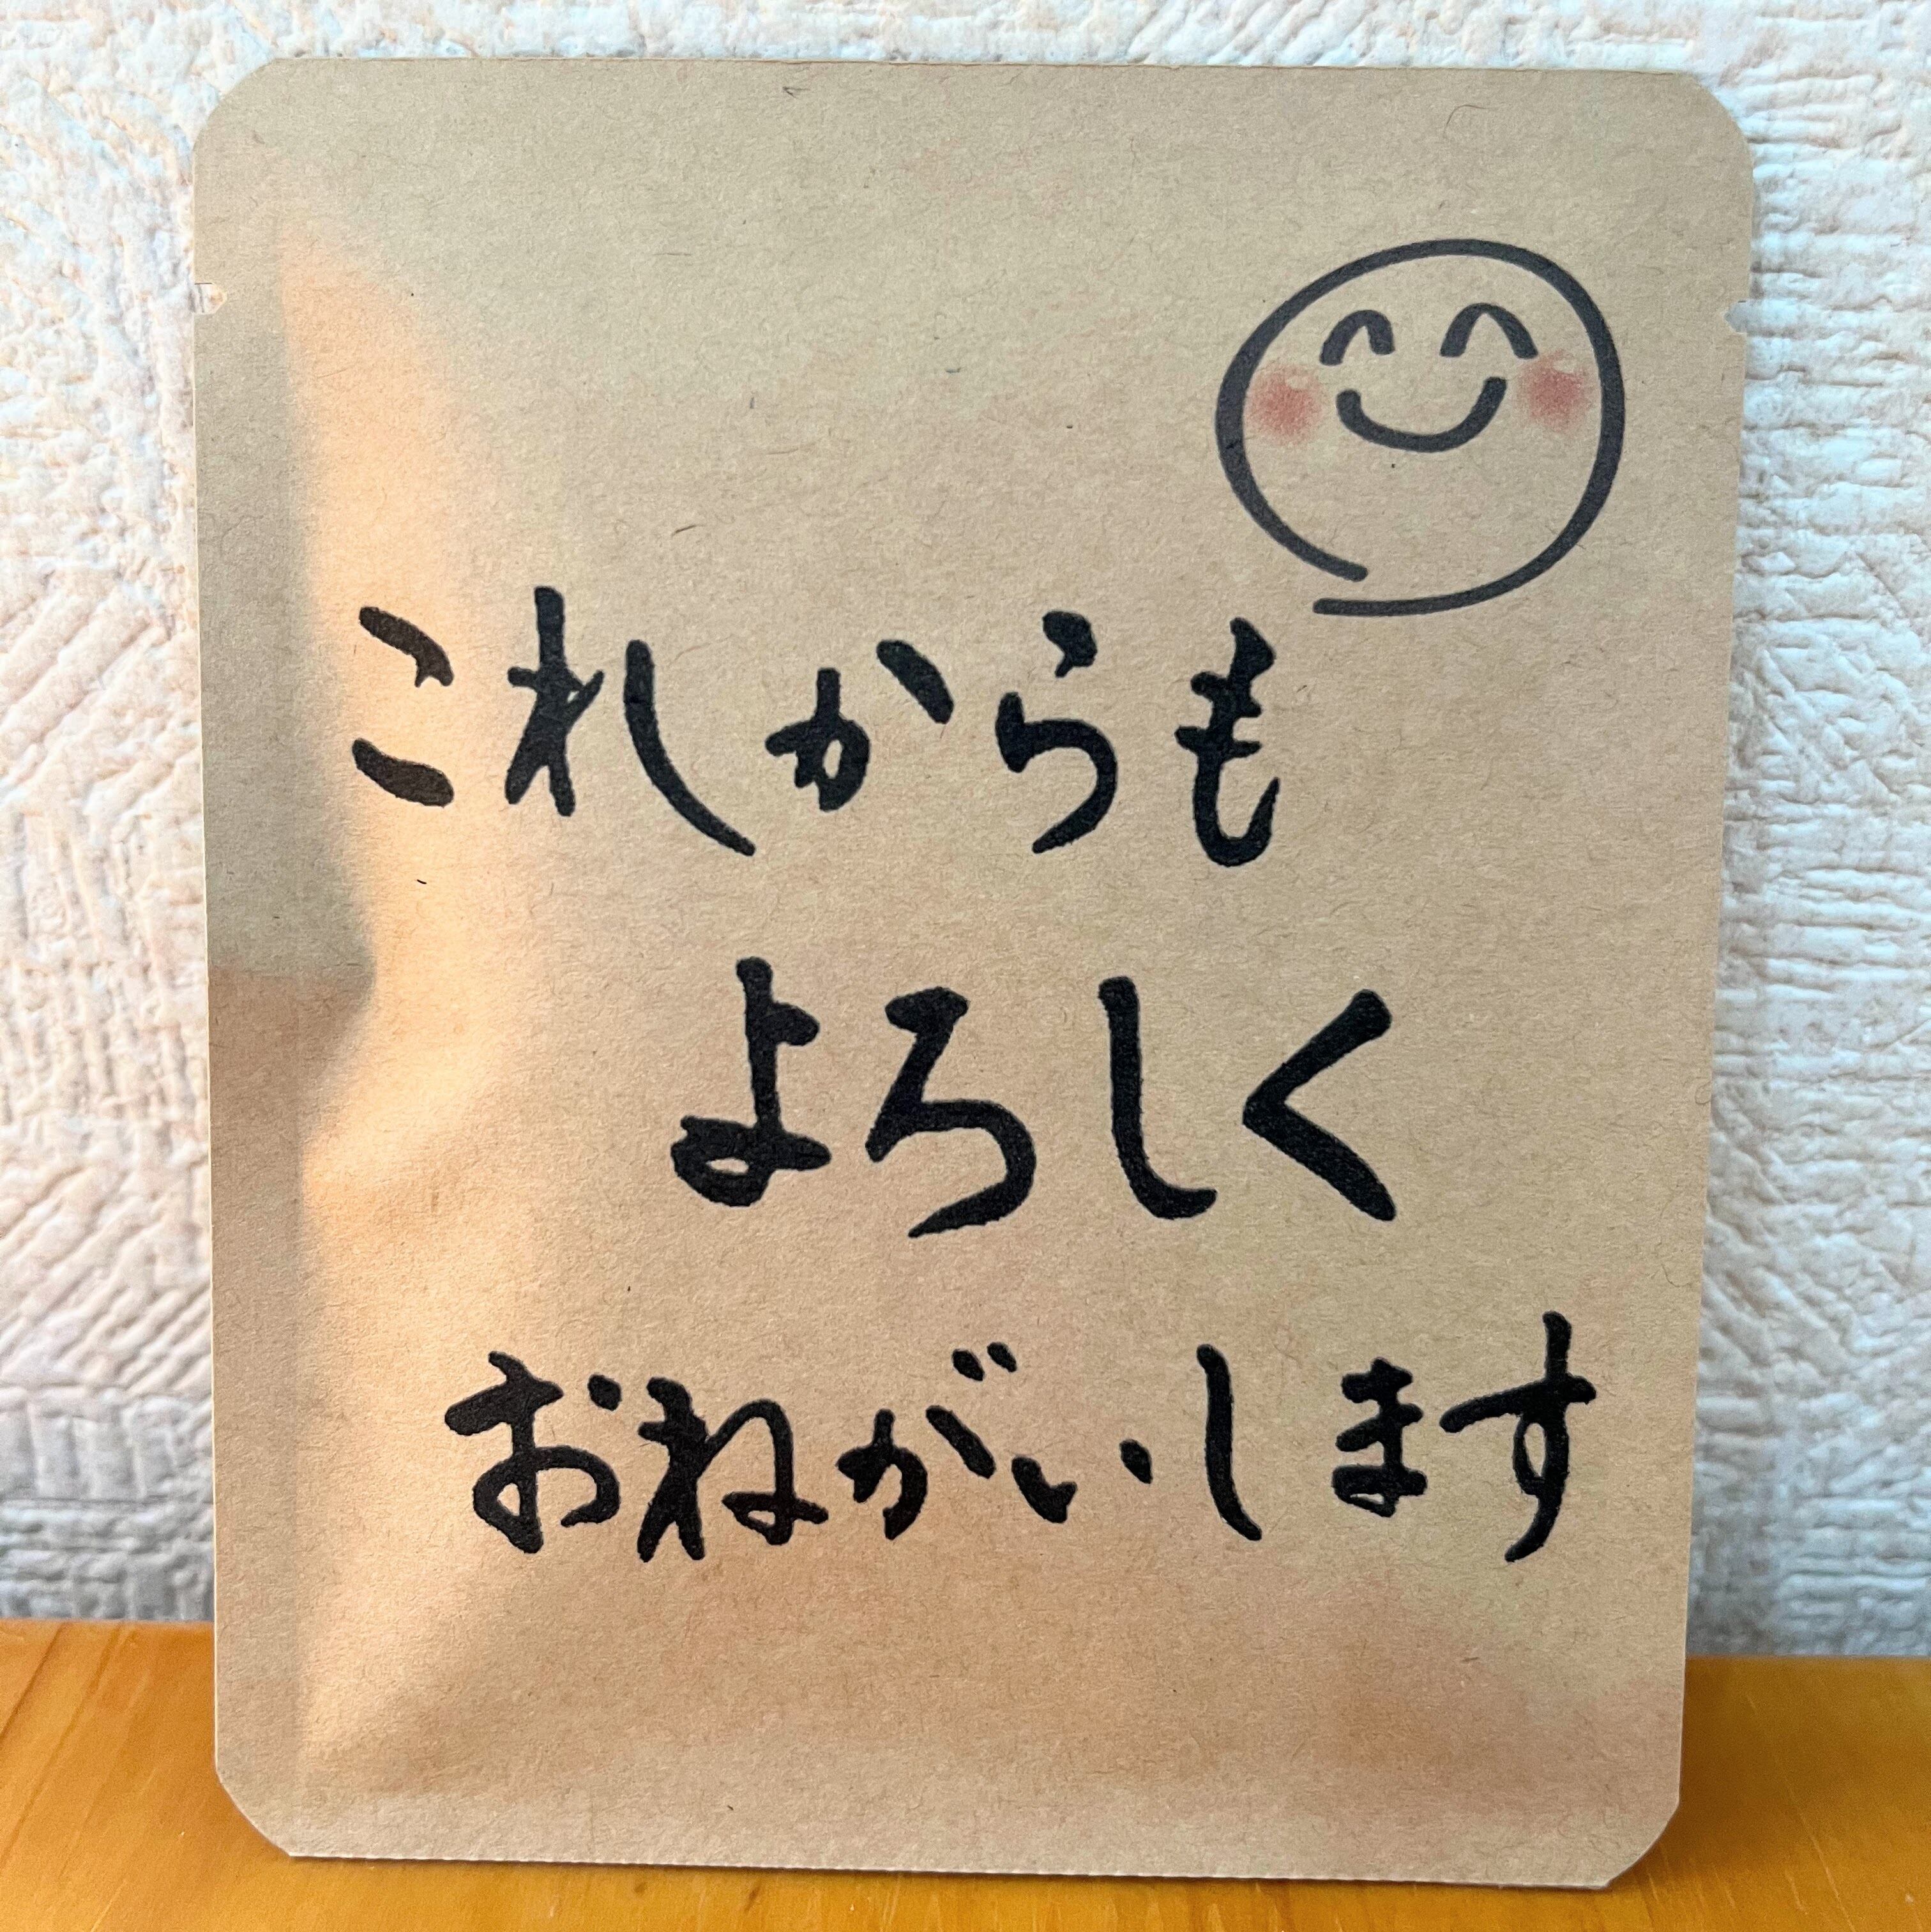 これからも
よろしく
おねがいします